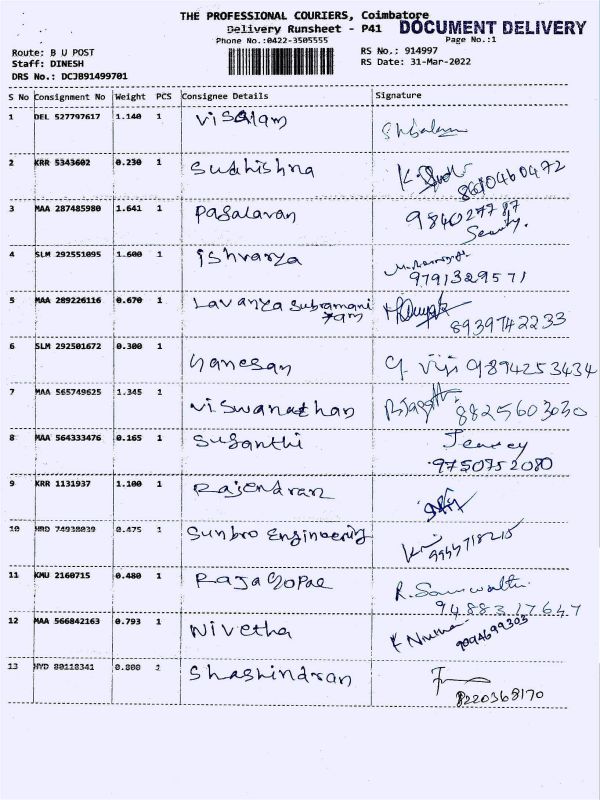 THE PROFESSIONAL COURIERS, Coimbatore
Delivery Runsheet - P41 DOCUMENT DELIVERY
Phone No.:0422-3505555 Page No.:1
Route: B U POST RS No.: 914997
Staff: DINESH RS Date: 31-Mar-2022
DRS No.: DCJB91499701
S No Consignment No Weight PCS Consignee Details Signature
1 DEL 527797617 1.140 1 Visalam
2 KRR 5343602 0.230 1 Sudhishna 8610460472
3 MAA 287485980 1.641 1 Pagalavan 984027787
4 SLM 292551095 1.600 1 ishvarya 9791329571
5 MAA 289226116 0.670 1 Lavanya Subramani
yam 8939742233
6 SLM 292501672 0.300 1 Ganesan G. Viji 9894253434
7 MAA 565749625 1.345 1 Viswanathan 8825603030
8 MAA 564333476 0.165 1 Suganthi
9750752080
9 KRR 1131937 1.100 1 Rajendran
10 HRD 74938039 0.475 1 Sunbro Engineering 9994718215
11 KMU 2160715 0.480 1 Rajagopal
9488317647
12 MAA 566842163 0.793 1 Nivetha 9094699303
13 HYD 80118341 0.800 1 Shashindran
8220368170